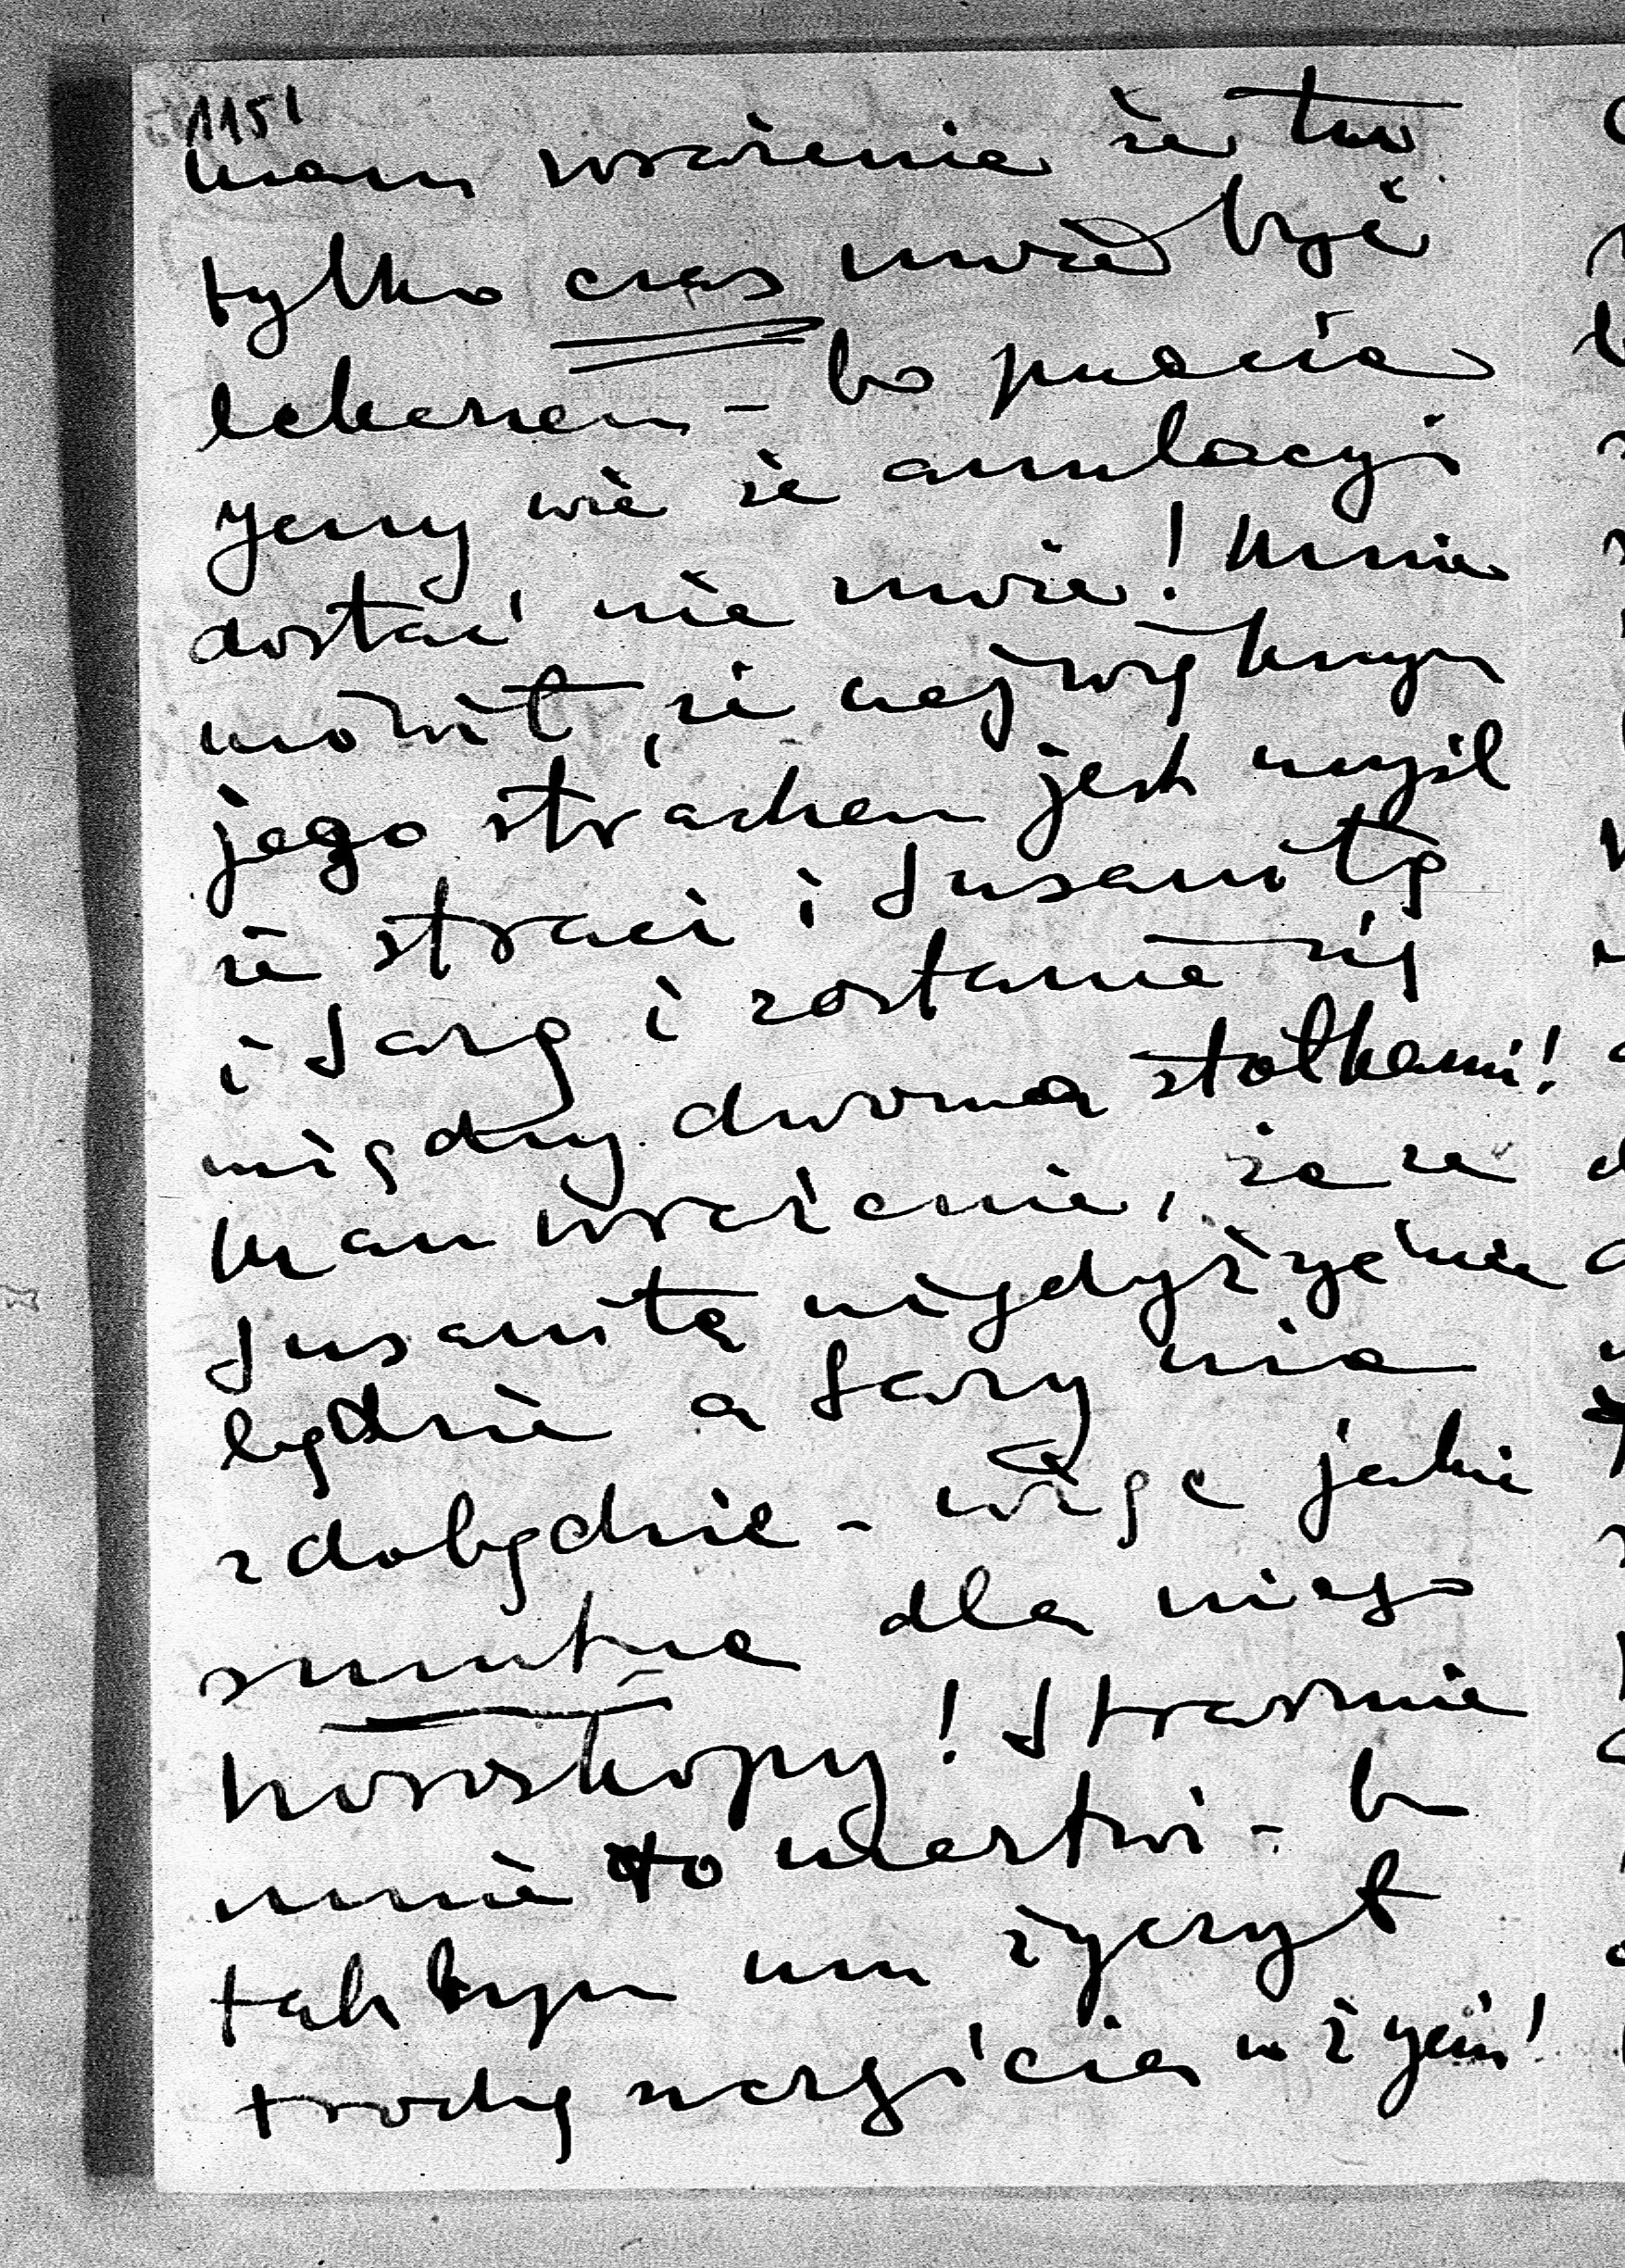 1151
mam wrażenie że tu
tylko czas może być
lekarzem - bo przecie
Jerzy wie że anulacji
dostać nie może! Mnie
mówił, że największym
jego strachem jest myśl
że straci i Susanitę
i Sarę i zostanie się
między dwoma stołkami!
Mam wrażenie, że ze
Susanitą nigdy żyć nie
będzie a Sary nie
zdobędzie - więc jakie
smutne dla niego
horoskopy! Strasznie
mnie to martwi - bo
takbym mu życzył
trochę szczęścia w życiu!